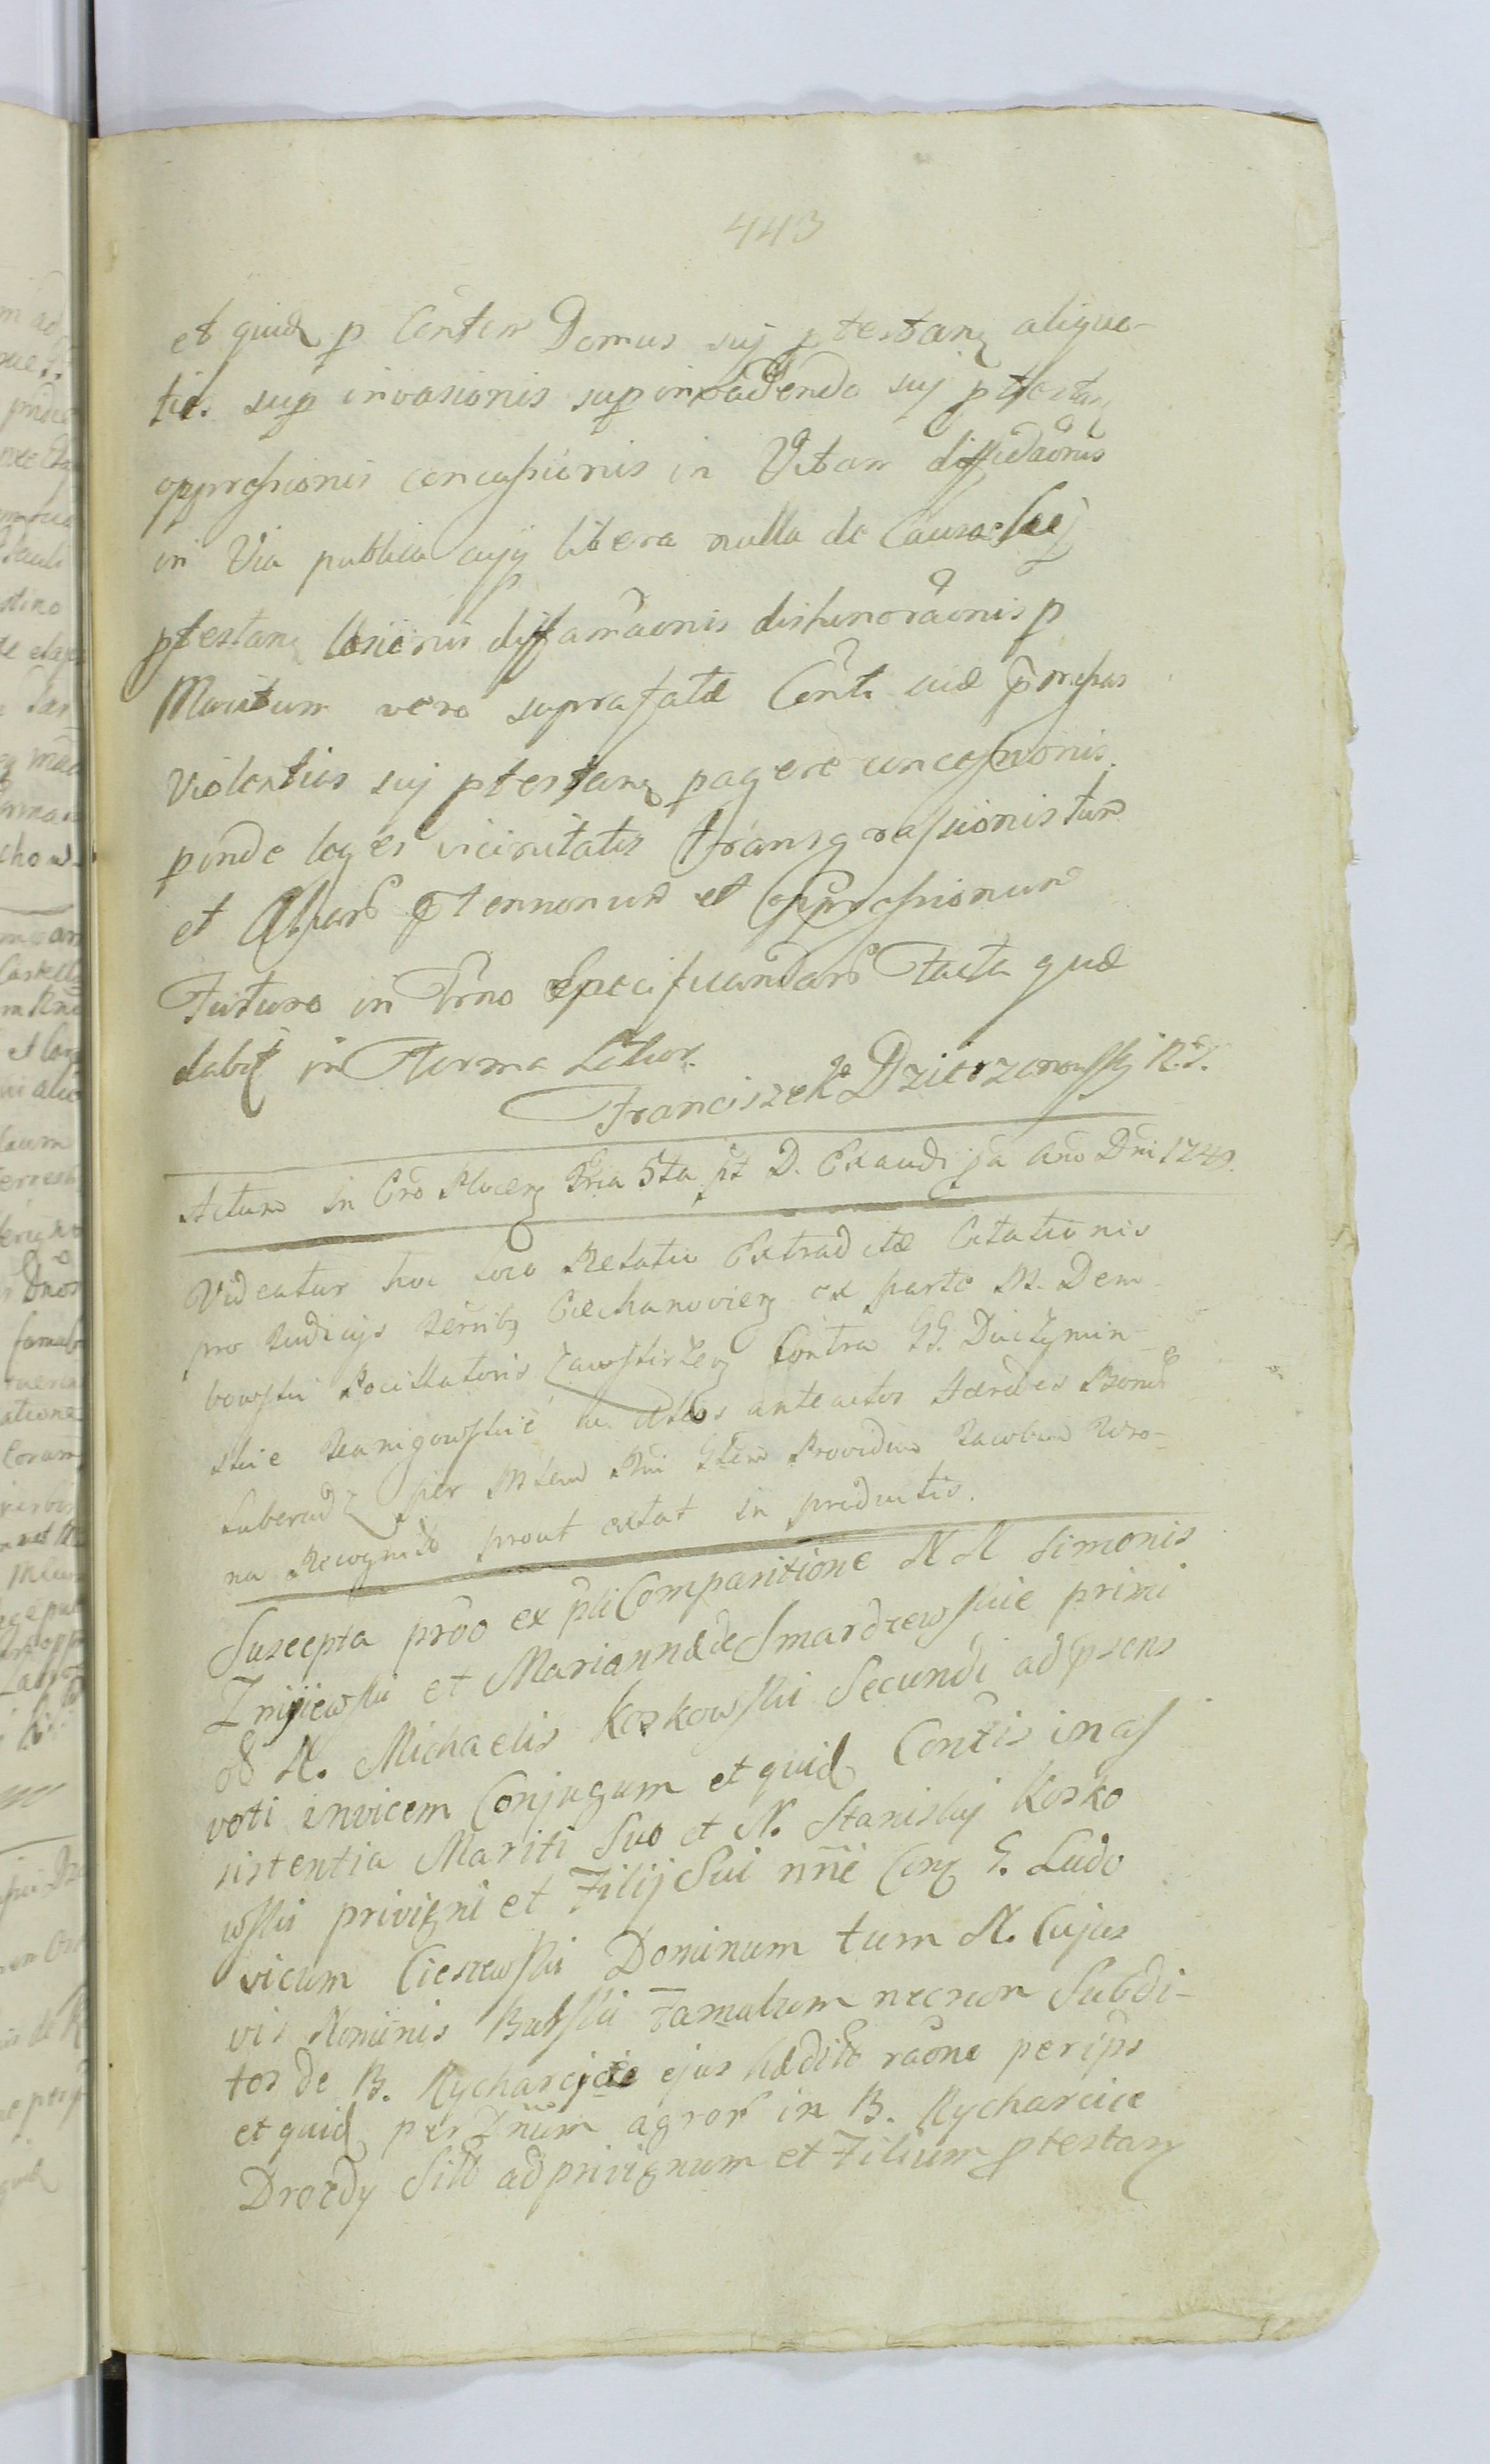 443
et quid p Conten Domus suj ptestanꝫ aliquo-
ties sup invasionis sup invadendo suj ptestanꝫ
oppressionis concussionis in Vitam diffidãonis
in Via publica cujꝫ libera nulla de Causa suj
ptestanꝫ læsionis diffamãonis dishonorãonis p
Maritum vero suprafatæ Contĩ suæ p̃missas
Violentias suj ptestanꝫ pagere concessionis
pinde leges vicinitatis transgressionis tum
et aliarũ et oppressionum
Futuro in Trno Specificandarũ Facta quæ
dabit in Forma Latior.
Franciszek Dzierzanowskj R. P.
Actum in Cro Plocenꝫ Fria 5ta pt D. Exaudi pa Ano Dni 1749.
Videatur hoc loco Relatio Extraditæ Citationis
pro Judicijs Terribꝫ Ciechanovienꝫ ex parte M. Dem-
bowski Pocillatoris Zawskrzenꝫ Contra GG. Duczymin-
skie alios anteactos Hæredes Bonorũ
per Mtem Rni Gtem Providum Jacobum Wro-
na Recognitõ prout extat in productis.
Suscepta pröo ex pliComparitione NN Simonis
Zmijewski et Mariannæ de Smardzewskie primi
od N. Michaelis Koskowski Secundi ad psens
voti invicem Conjugum et quid Contis in as
sistentia Mariti Suo et N. Stanislaj Kosko
wski privigni et Filij Sui nñe Conꝫ G. Ludo
vicum Cieszewski Dominum tum N. Cujus
vis Nominis Bubski Famulum necnon Subdi-
tos de B. Rycharcice ejus hæditõ rãone per ip̃s
et quid per Znũm agrorũ in B. Rycharcice
Drozdy Sitõ ad privignum et Filium ptestanꝫ